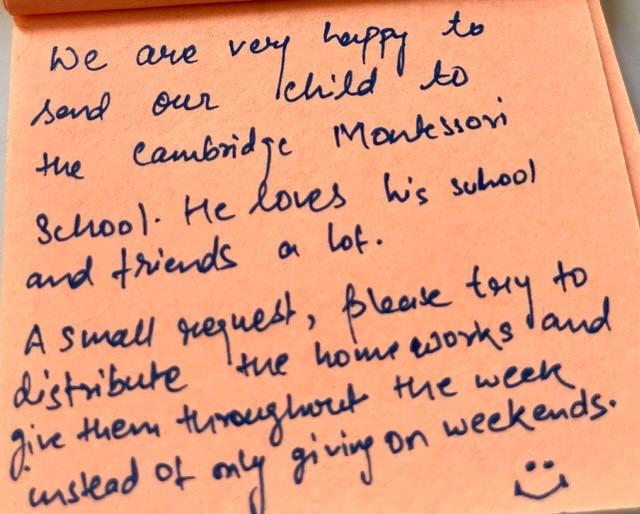 We are very happy to
send our child to
the Cambridge Montessori
School. He loves his school
and friends a lot.
A small request, please try to
distribute the homeworks and
give them throughout the week
instead of only giving on weekends.